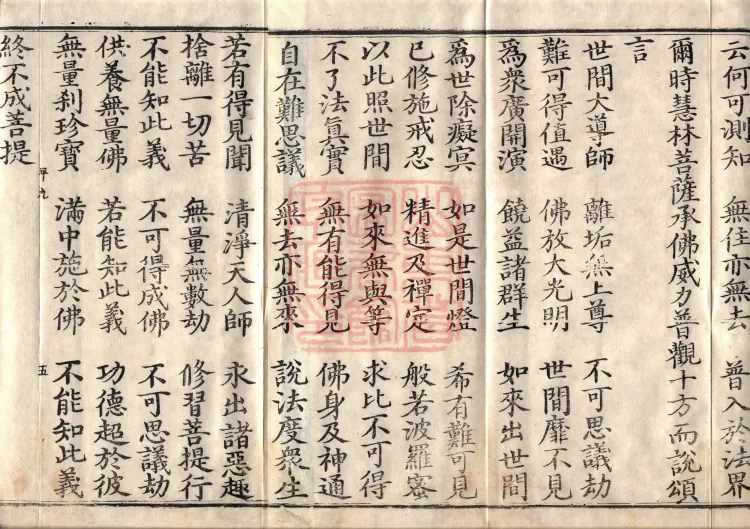 云何可測知　無住亦無去　普入於法界
爾時慧林菩薩承佛威力普觀十方而說頌
言
世間大導師　離垢無上尊　不可思議劫
難可得值遇　佛放大光明　世間靡不見
為眾廣開演　饒益諸群生　如來出世間
為世除癡冥　如是世間燈　希有難可見
已修施戒忍　精進及禪定　般若波羅蜜
以此照世間　如來無與等　求比不可得
不了法真實　無有能得見　佛身及神通
自在難思議　無去亦無來　說法度眾生
若有得見聞　清淨天人師　永出諸惡趣
捨離一切苦　無量無數劫　修習菩提行
不能知此義　不可得成佛　不可思議劫
供養無量佛　若能知此義　功德超於彼
無量剎珍寶　滿中施於佛　不能知此義
平九　五
終不成菩提